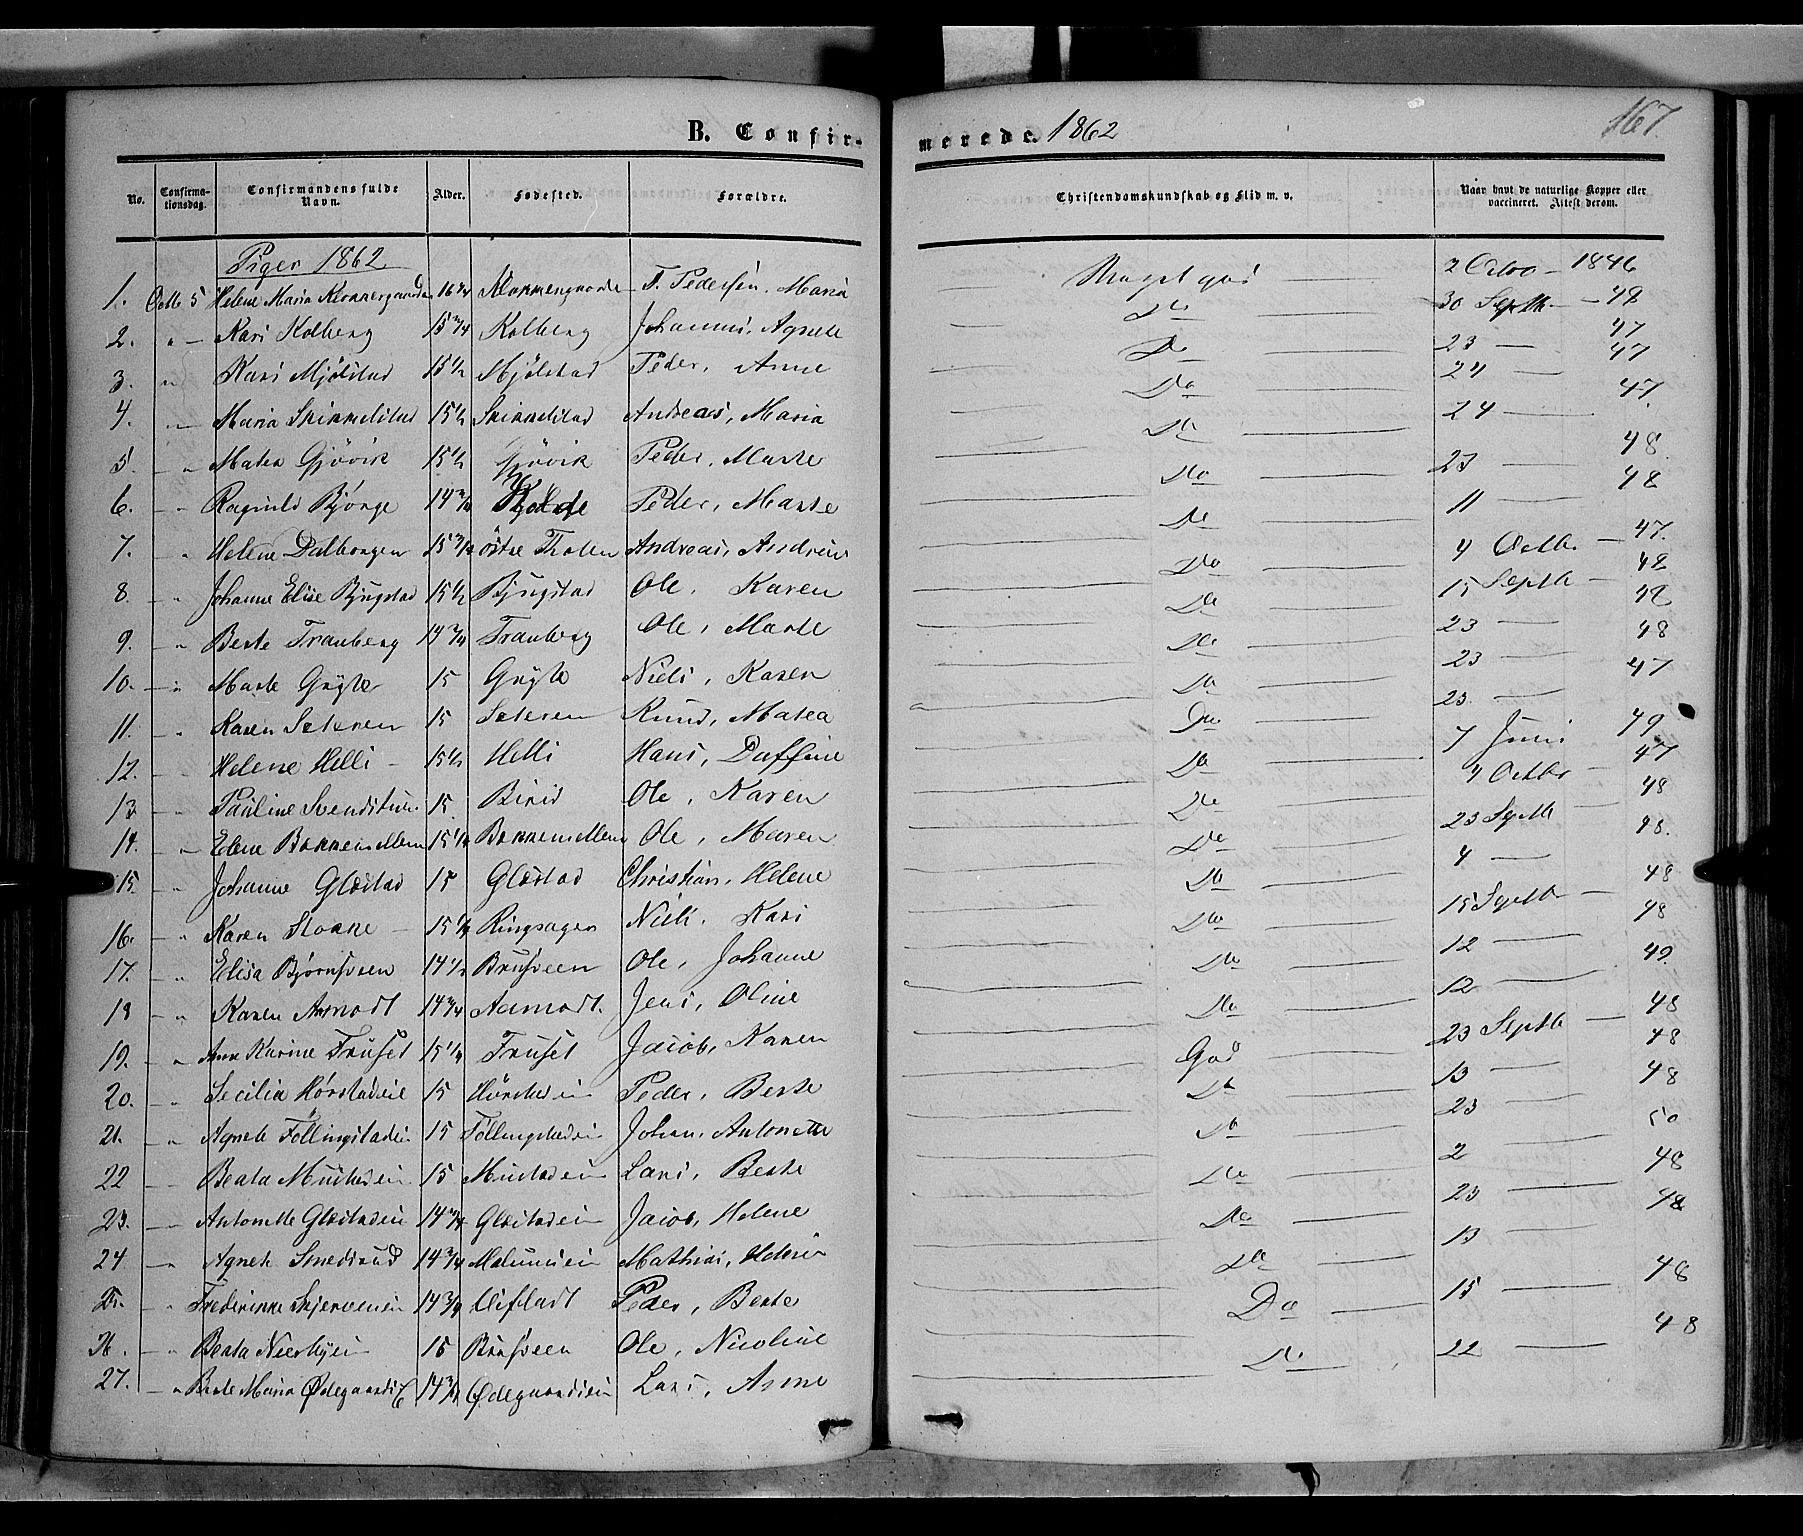 B. Confirmerede. 1862
167.
No. Confirmationsdag. Confirmandens fulde Navn. Alder. Fødested. Forældre. Christendomskundskab og Flid m. v. Naar havt de naturlige Kopper eller vaccineret. Attest derom.
Piger 1862
1. Octb 5 Helene Maria 16 3/4 T. Pedersen, Maria Meget god 2 Octbr 1846
2. " Kari Kolberg 15 3/4 Kolberg Johannes, Agnete Do 30 Septb - 48
3. " Kari Mjölstad 15 1/2 Mjölstad Peder, Anne Do 23 - 47
4. " Maria Skikkelstad 15 1/2 Skikkelstad Andreas, Maria Do 24 - 47
5. " Matea Gjövik 15 1/2 Gjövik Peder, Marte Do 24 - 47
6. " Ragnild Bjönge 14 3/4 Peder, Marte Do 27 - 48
7. " Helene Dalborgen 15 3/4 östre Thoten Andreas, Do 11 - 48
8. " Johanne Elise Bjugstad 15 1/2 Bjugstad Ole, Karen Do 4 Octbr - 47
9. " Berte Tranberg 14 3/4 Tranberg Ole, Marte Do 15 Septb - 48
10. " Marte Gryte 15 Gryte Niels, Karen Do 23 - 48
11. " Karen Seteren 15 Seteren Knud, Matea Do 23 - 48
12. " Helene Helli 15 1/2 Helli Hans, Daffine Do 23 - 47
13 " Pauline 15 Birid Ole, Karen Do 7 Juni 49
14. " Elene 15 1/4 Ole, Maren Do 4 Octbr - 47
15. " Johanne Glæstad 15 Glæstad Christian, Helene Do 23 Septb - 48
16. " Karen 15 1/4 Ringsager Niels, Kari Do 4 - 48.
17. " Elisa Bjørnsveen 14 1/2 Brusveen Ole, Johanne Do 15 Septb - 48
18 " Karen Aamodt 14 3/4 Aamodt. Jens, Oline Do 12 - 48
19. " Ane Karine Fruset 15 1/4 Fruset Jacob, Karen God 12 - 49.
20. " Cecilia Hörstadeie 15 Peder, Berte Do 23 Septb - 48
21. " Agnete Föllingstadeie 15 Johan, Antonette Do 13 - 48
22 " Beata Mustadeie 15 Mustadeie Lars, Berte Do 23 - 48
23. " Antonette Glæstadeie 14 3/4 Glæstadeie Jacob, Helene Do 2 50
24 " Agnete Smedsrud 14 3/4 Mathias, Do 23 - 48
25. " Frederikke 14 3/4 Peder, Berte Do 13 - 48
26. " Beata 15 Brusveen Ole, Nicoline Do 15 - 48
27. " Berte Maria Ødegaardsei 14 3/4 Ødegaardseie Lars, Anne 22 - 48